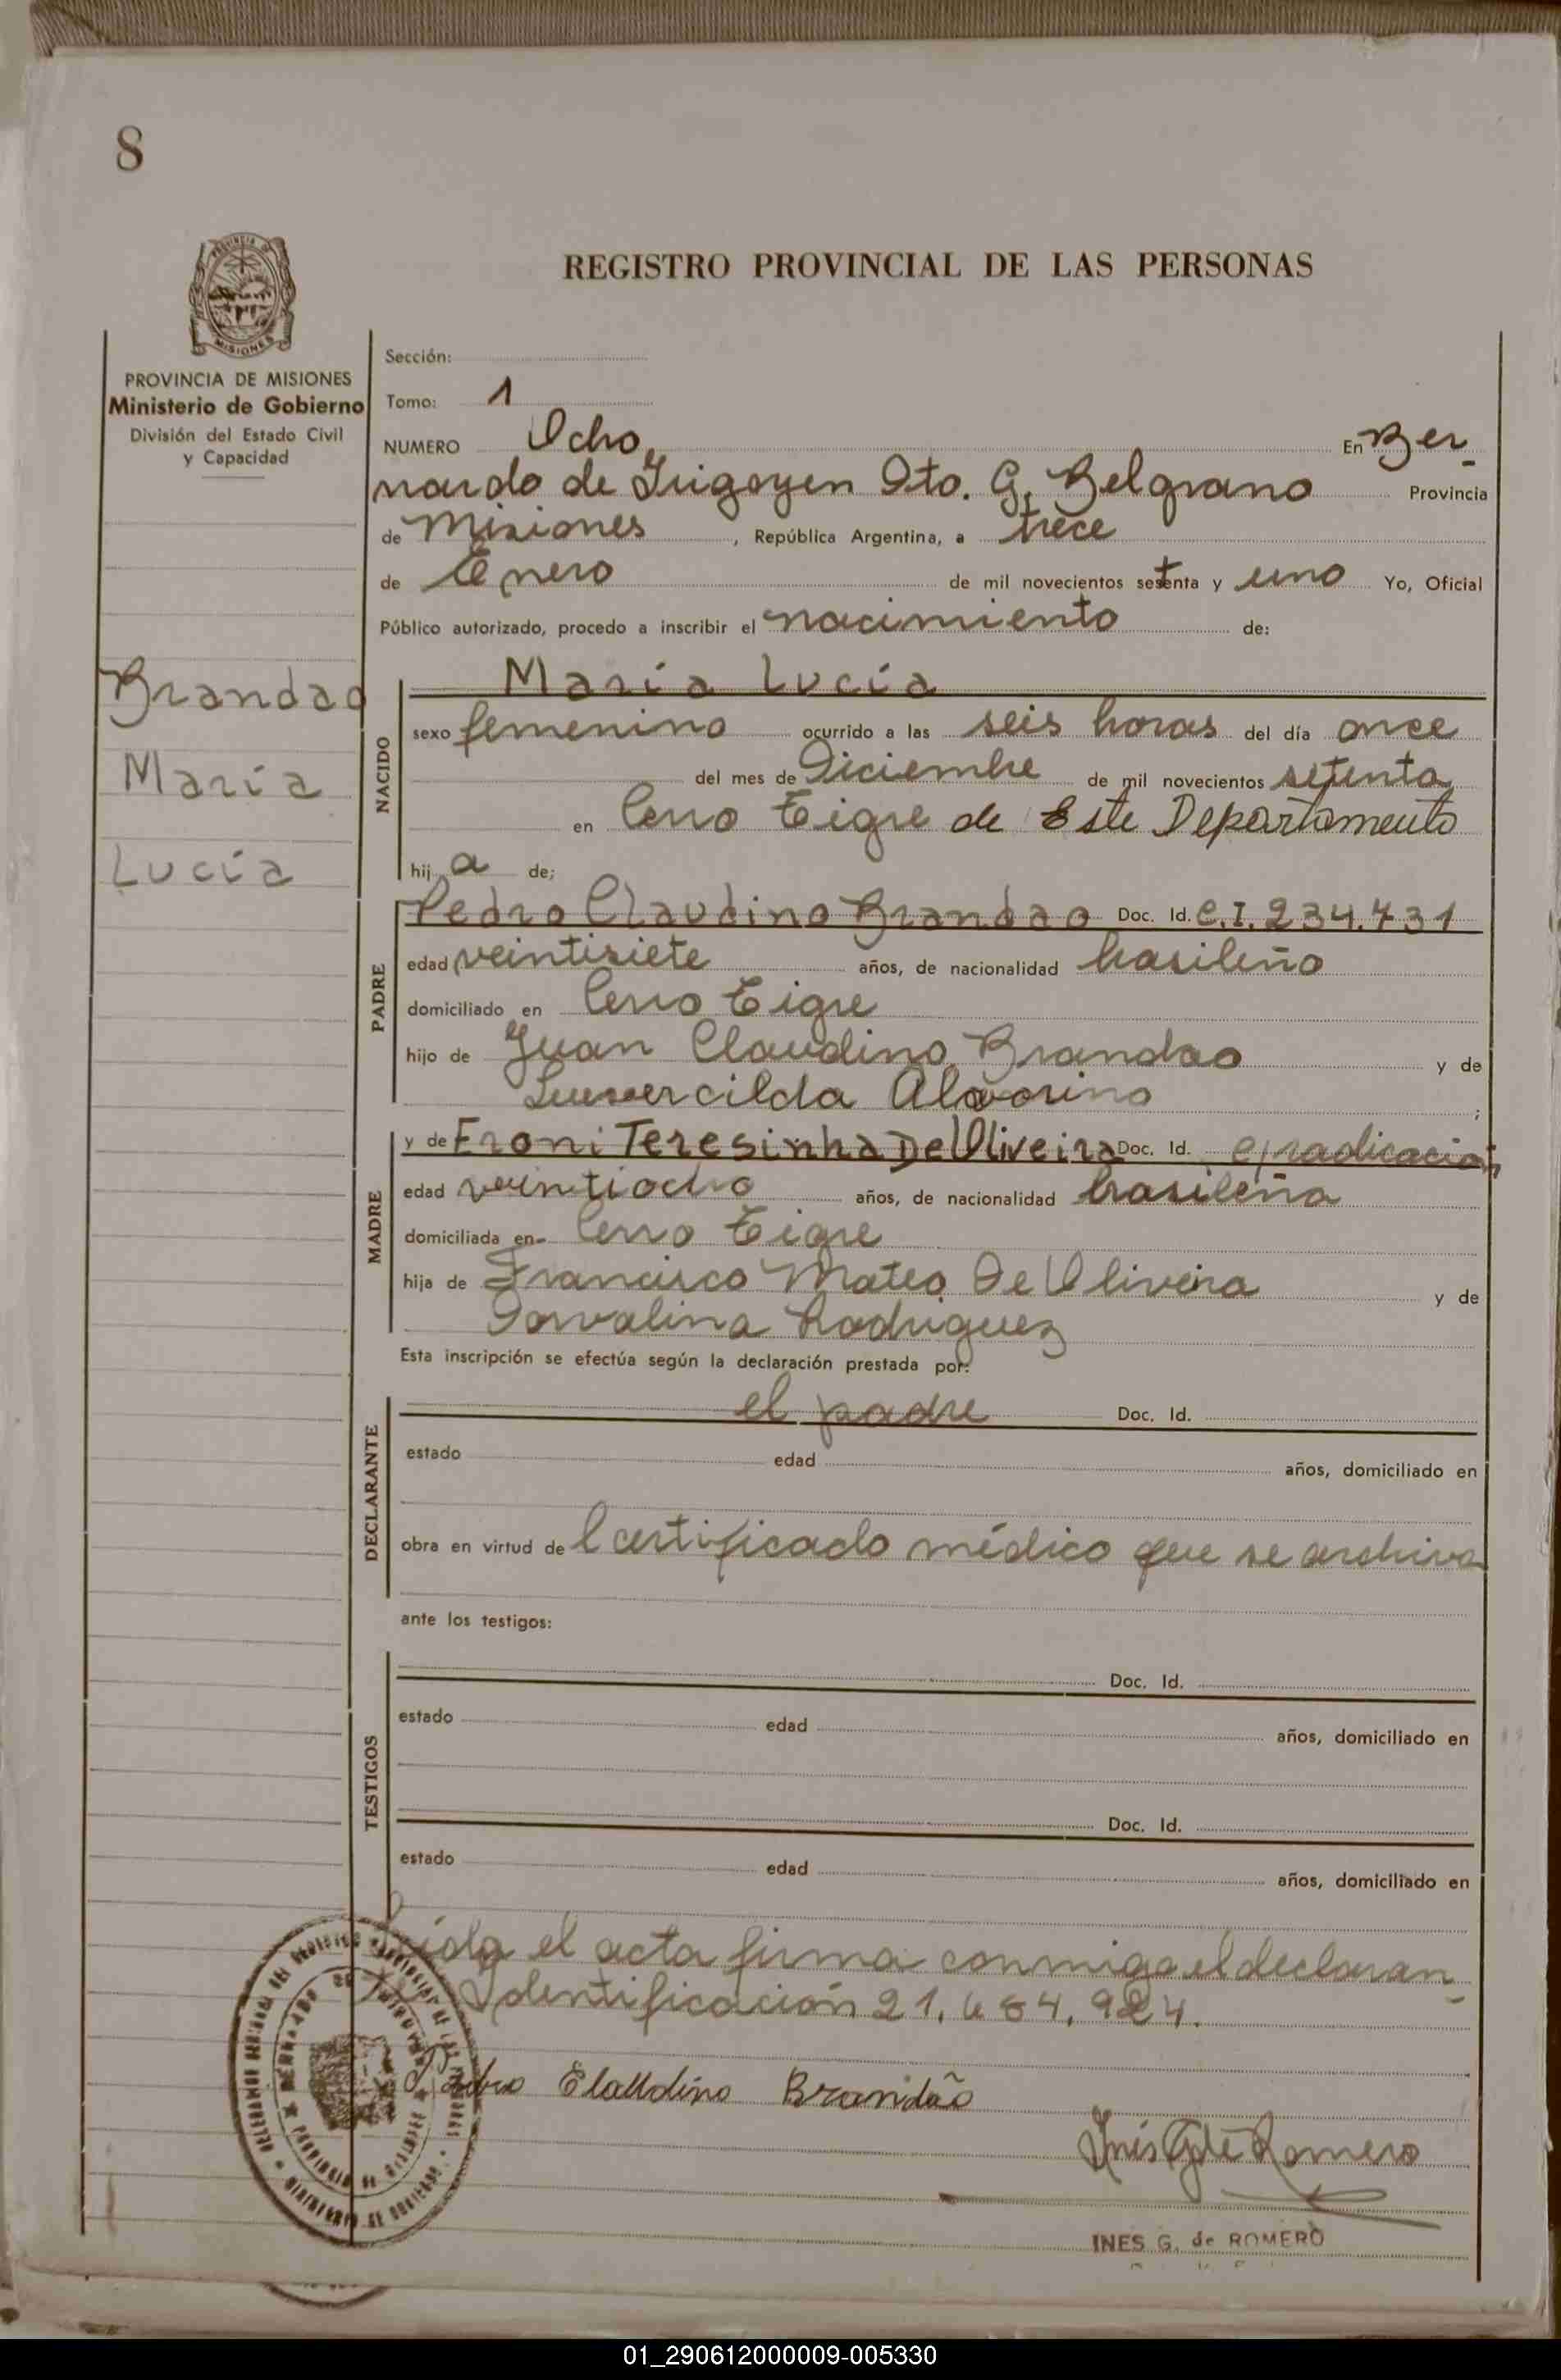 8
REGISTRO PROVINCIAL DE LAS PERSONAS
PROVINCIA DE MISIONES
Ministerio de Gobierno
División del Estado Civil
y Capacidad
Sección:
Tomo: 1
NUMERO Ocho En Ber-
nardo de Irigoyen Dto. G. Belgrano Provincia
de Misiones, República Argentina, a trece
de Enero de mil novecientos setenta y uno Yo, Oficial
Público autorizado, procedo a inscribir el nacimiento de:
Brandao
María
Lucía
NACIDO
María Lucía
sexo femenino ocurrido a las seis horas del día once
del mes de Diciembre de mil novecientos setenta
en Cerro Tigre de Este Departamento
hija de;
PADRE
Pedro Claudino Brandao Doc. Id. C.I. 234.431
edad veintisiete años, de nacionalidad brasileño
domiciliado en Cerro Tigre
hijo de Juan Claudino Brandao y de
;
MADRE
y de Eroni Teresinha De Oliveira Doc. Id. e/radicación
edad veintiocho años, de nacionalidad brasileña
domiciliada en Cerro Tigre
hija de Francisco Mateo De Oliveira y de
Dorvalina Rodriguez
Esta inscripción se efectúa según la declaración prestada por:
DECLARANTE
el padre Doc. Id.
estado edad años, domiciliado en
obra en virtud del certificado médico que se archiva
ante los testigos:
TESTIGOS
Doc. Id.
estado edad años, domiciliado en
Doc. Id.
estado edad años, domiciliado en
Leída el acta firma conmigo el declaran-
te Identificación 21.
Pedro Claudino Brandão
Inés G de Romero
INES G. de ROMERO
01_290612000009-005330